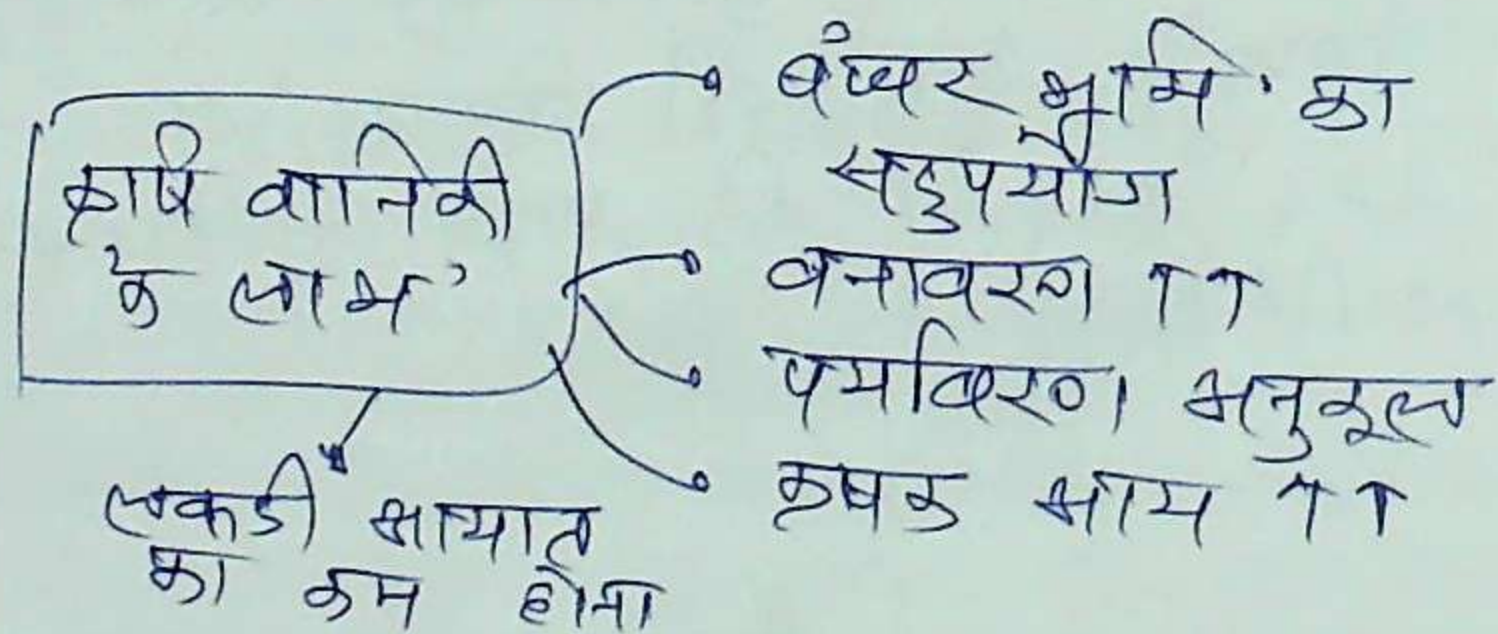 कृषि वानिकी
के लाभ
बंजर भूमि का
सदुपयोग
वनावरण ↑↑
पर्यावरण अनुकूल
कृषक आय ↑↑
लकडी आयात
का कम होना